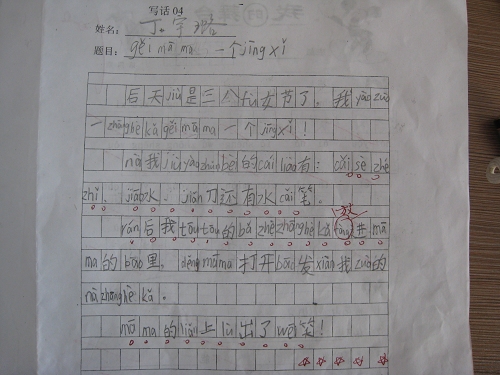 写话 04
姓名：丁宇
题目：gěi mā ma 一个jīng xǐ
后天jiù是三八fù女节了，我yào zuò
一zhāng hè kǎ gěi mā ma 一个jīng xǐ！
nà我jiù yào zhǔn bèi的cái liào有：cǎi sè zhé
zhǐ、jiāo水、jiǎn刀还有水cǎi笔。
rán后我tōu tōu的bǎ zhè zhāng hè kǎ fàng进mā
放
ma的bāo里，děng mā ma打开bāo发xiàn我zuò的
nà zhāng hè kǎ。
mā ma的liǎn上lù出了wēi笑！